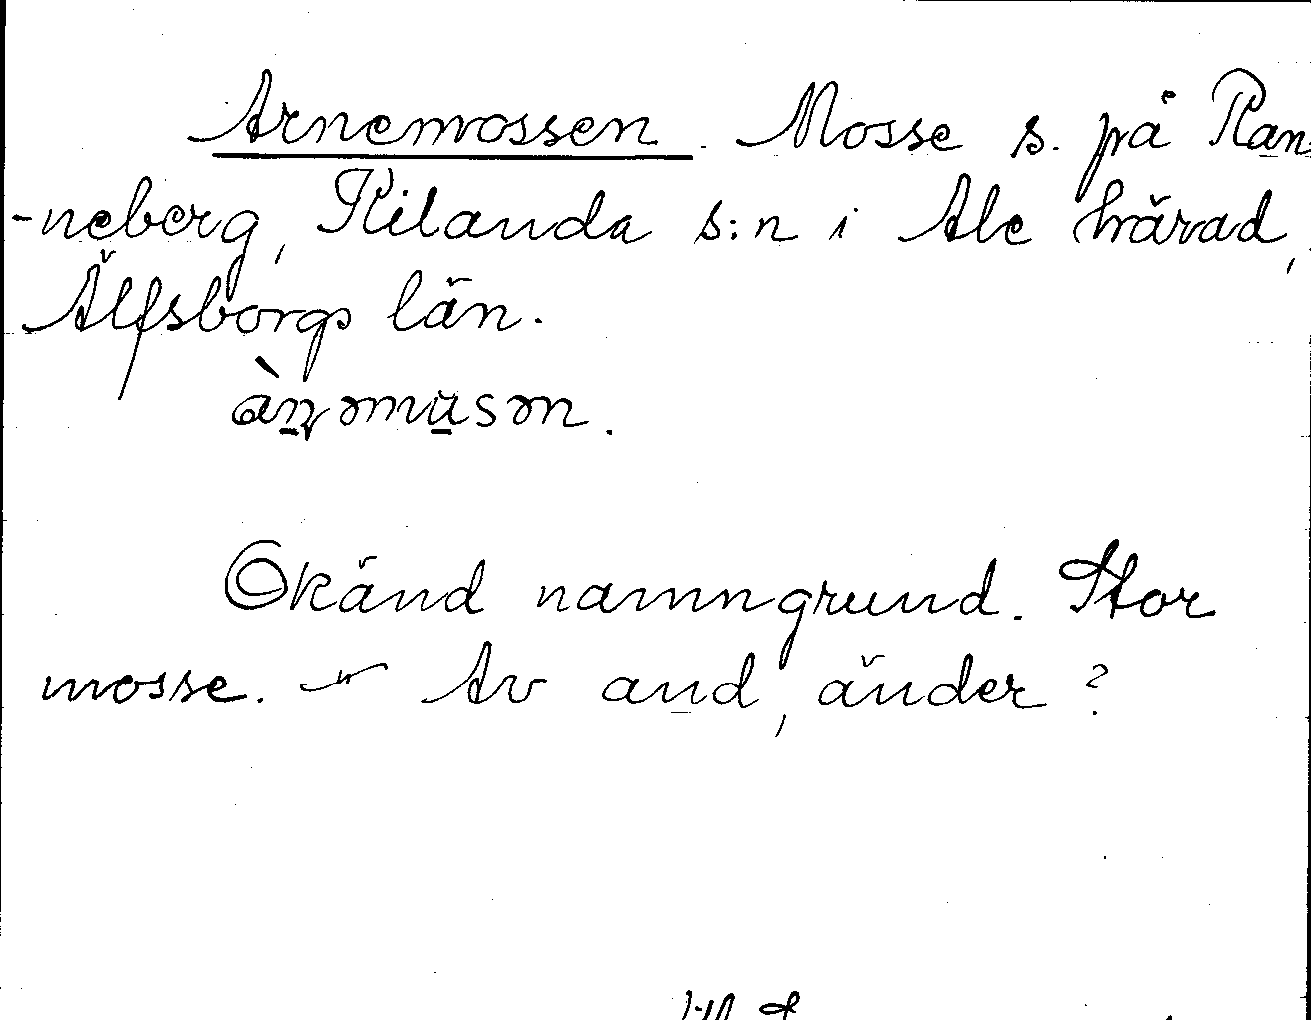 Arnemossen. Mosse s. på Ran-
-neberg, Kilanda s:n i Ale härad,
Älfsborgs län.
Okänd namngrund. Stor
mosse. – Av and, änder?